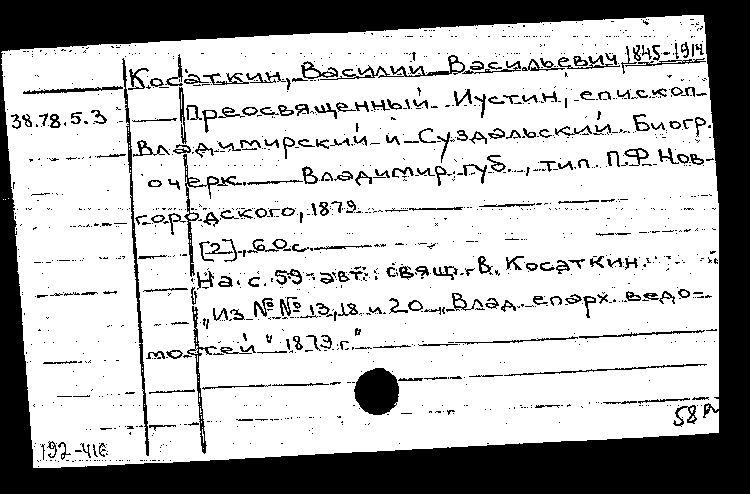 Косаткин, Василий Васильевич, 1845-1914
38.78.5.3 Преосвященный Иустин, епископ
Владимирский и Суздальский. Биогр.
очерк Владимир. губ., тип. П.Ф. Нов-
городского, 1879
[2], 60 с.
На с. 59 авт.: свящ. В. Косаткин.
"Из №№ 13, 18 и 20 „Влад. епарх. ведо-
мостей" 1879 г."
192-416